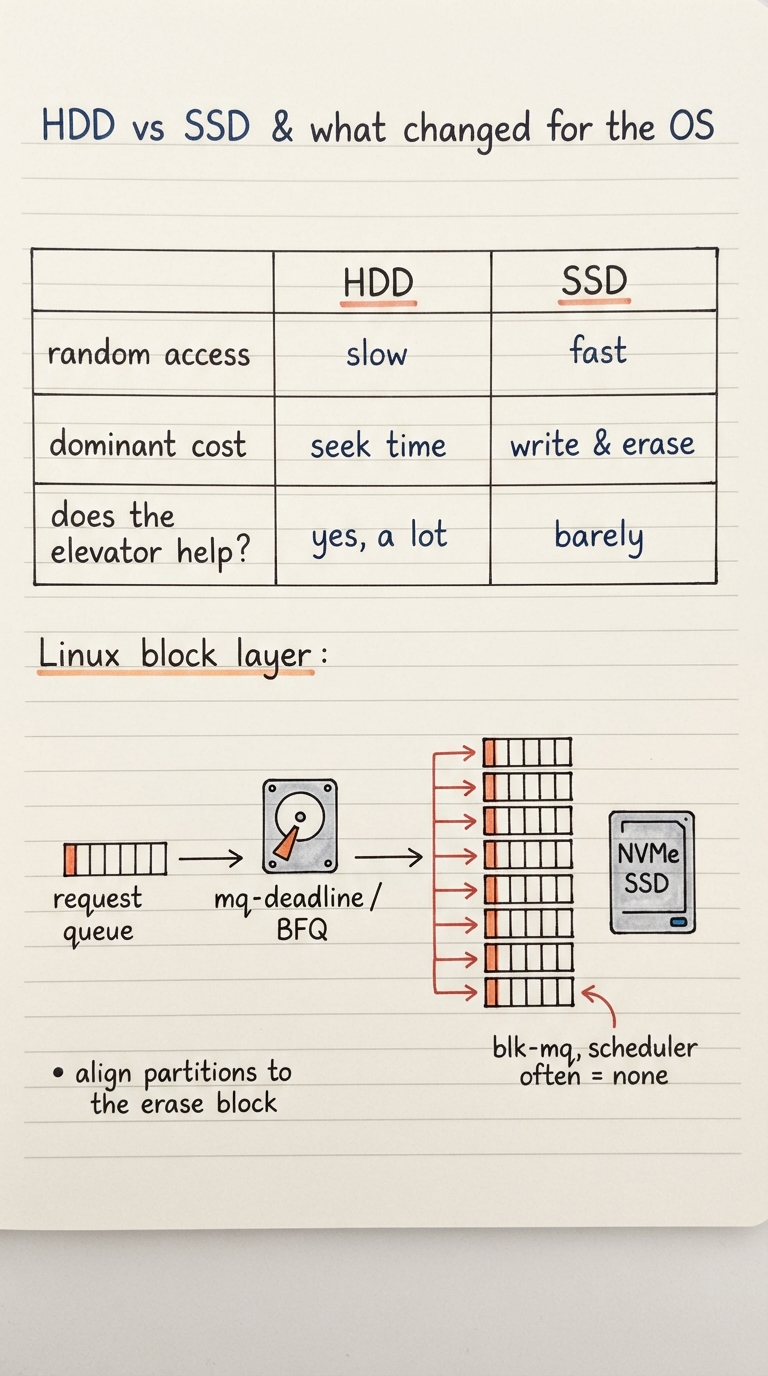 HDD vs SSD & what changed for the OS
HDD SSD
random access slow fast
dominant cost seek time write & erase
does the
elevator help? yes, a lot barely
Linux block layer:
request
queue
mq-deadline /
BFQ
NVMe
SSD
blk-mq, scheduler
often = none
• align partitions to
the erase block